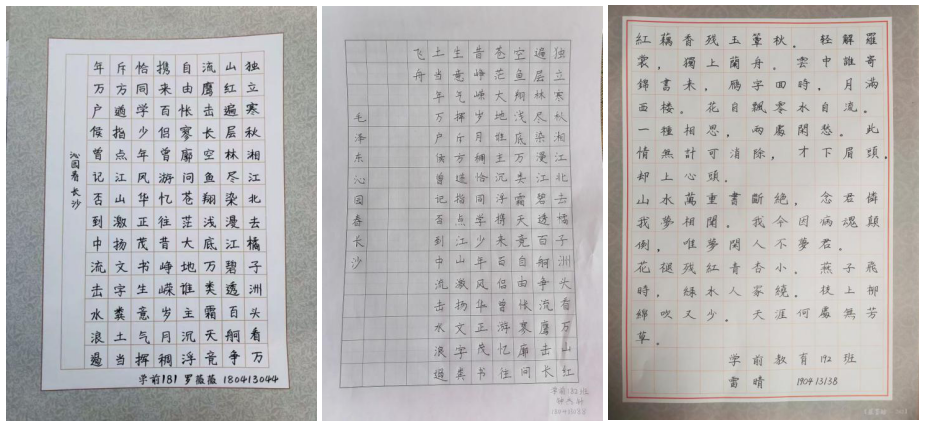 独立寒秋湘江北去橘子洲头看万
山红遍层林尽染漫江碧透百舸争
流鹰击长空鱼翔浅底万类霜天竞
自由怅寥廓问苍茫大地谁主沉浮
携来百侣曾游忆往昔峥嵘岁月稠
恰同学少年风华正茂书生意气挥
斥方遒指点江山激扬文字粪土当
年万户侯曾记否到中流击水浪遏
沁园春 长沙
学前181 罗薇薇 180413044
独立寒秋湘江北去橘子洲头看万山红
遍层林尽染漫江碧透百舸争流鹰击长
空鱼翔浅底万类霜天竞自由怅寥廓问
苍茫大地谁主沉浮携来百侣曾游忆往
昔峥嵘岁月稠恰同学少年风华正茂书
生意气挥斥方遒指点江山激扬文字粪
土当年万户侯曾记否到中流击水浪遏
飞舟
毛泽东沁园春长沙
学前182班
紅藕香残玉簟秋。轻解羅
裳，獨上蘭舟。雲中誰寄
錦書来，雁字回時，月滿
西楼。花自飄零水自流。
一種相思，兩處閑愁。此
情無計可消除，才下眉頭，
却上心頭。
山水萬重書斷絶，念君憐
我夢相聞。我今因病魂顛
倒，唯夢閑人不夢君。
花褪残紅青杏小。燕子飛
時，緑水人家繞。枝上柳
綿吹又少。天涯何處無芳
草。
学前教育192班
雷晴 190413138